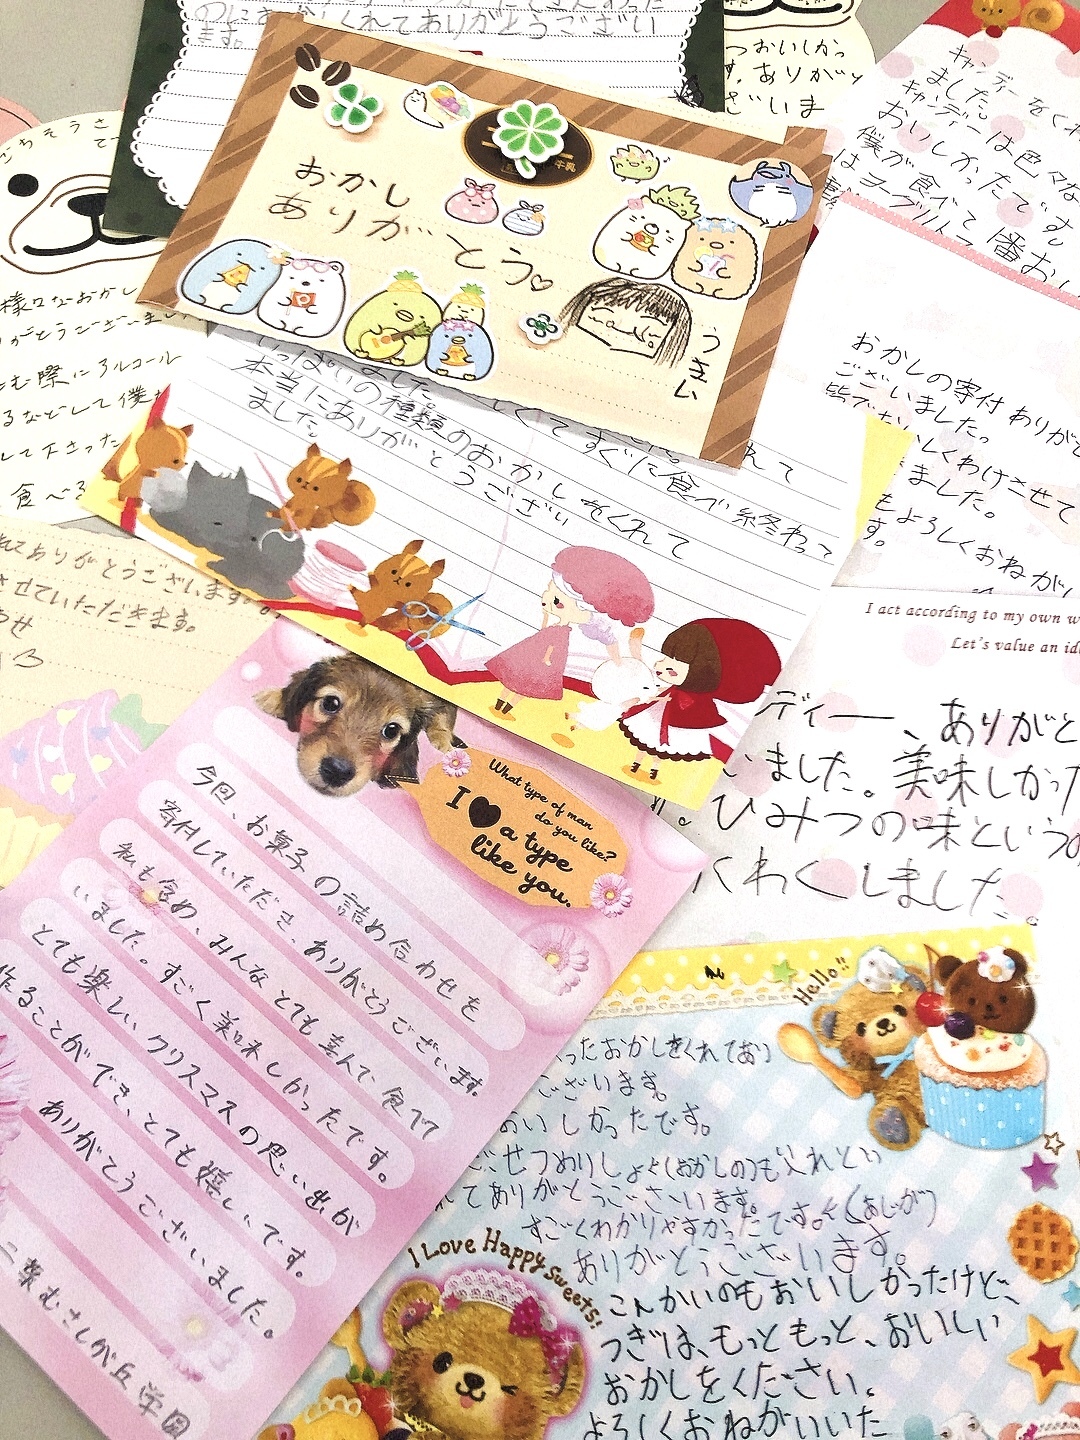 くれてありがとうござい
ます。
つおいしかっ
す。ありがと
ざいま
キャンディーをくれ
ました。
キャンディーは色々な
おいしかったです。
僕が食べて一番おい
はヨーグルト
ごちそうさ
おかし
ありがとう♡
うきい
様々なおかし
がとうございまし
む際にアルコール
るなどして僕
して下さった
食べる
いっぱいの種類のおかしをくれて
本当にありがとうござい
ました。
くてすぐに食べ終わって
おかしの寄付ありがと
ございました。
皆でたのしくわけさせて
きました。
もよろしくおねがい
す。
れてありがとうございます。
させていただきます。
I act according to my own w
Let's value an ide
ディー、ありがと
いました。美味しかった
ひみつの味という
くわくしました。
What type of man
do you like?
I ♥ a type
like you.
今回、お菓子の詰め合わせを
寄付していただき、ありがとうございます。
私も含め、みんなとても喜んで食べて
いました。すごく美味しかったです。
とても楽しいクリスマスの思い出が
作ることができ、とても嬉しいです。
ありがとうございました。
二葉むさしが丘学園
Hello!!
ったおかしをくれており
ございます。
おいしかったです。
せつめいしょ(おかしの)も入れとい
てありがとうございます。
すごくわかりやすかったです。
ありがとうございます。
こんかいのもおいしかったけど、
つぎは、もっともっと、おいしい
おかしをください。
よろしくおねがいいた
I Love Happy Sweets!